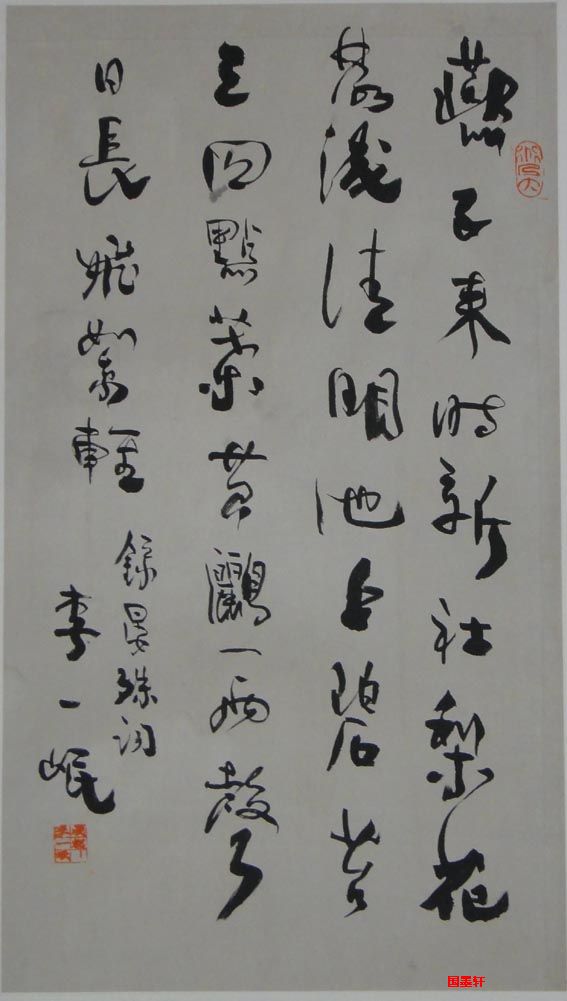 燕子来時新社梨花
落後清明池上碧苔
三四點葉黄鸝一兩聲
日長飛絮輕
錄晏殊詞
李一氓
国墨轩